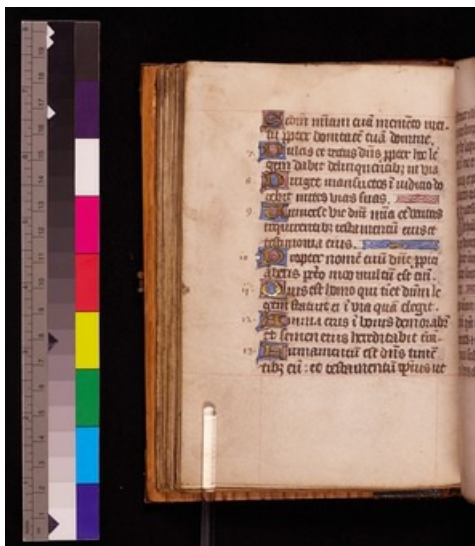 Scdm m̄iam tuā memēto mei
tu ꝓpter bonitatē tuā domine.
7. Dulcis et rectus dn̄s ꝓpter hoc le
gem dabit delinquentibꝫ in via
8. Diriget mansuetos ī iudicio do
cebit mites vias suas.
9. Vniuerse vie dn̄i mīa et veritas
requirentibꝫ testamentū eius et
testimonia eius.
10. Propter nomē tuū dn̄e ꝓpicia
beris pctō meo multū est eni̅.
11. Quis est homo qui timet dn̄m le
gem statuit ei ī via quā elegit.
12. Anima eius ī bonis demorabit̄
et semen eius hereditabit t̄rā.
13. Firmamentū est dn̄s timen
tibꝫ eū : et testamentū ip̄ius ut